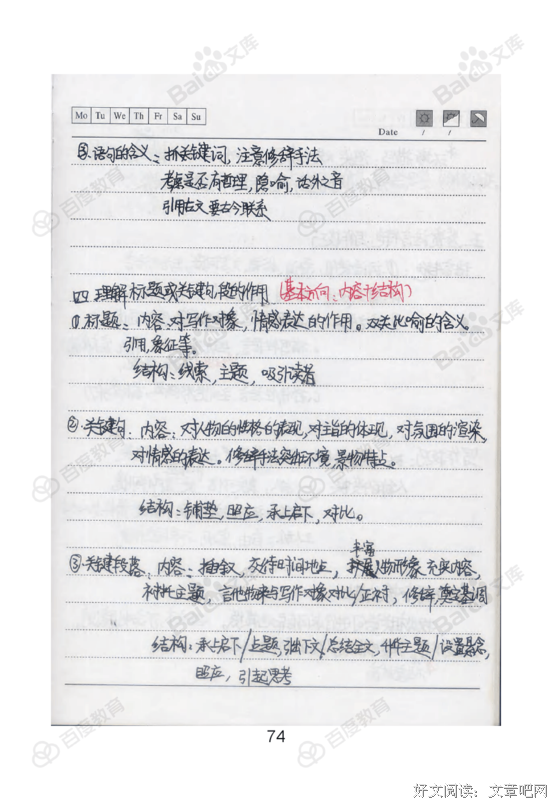 Mo Tu We Th Fr Sa Su
Date / /
③.语句的含义：抓关键词，注意修辞手法
考虑是否有哲理，隐喻，话外之音
引用古文要古今联系
四.理解标题或关键句，段的作用（基本方向：内容+结构）
①.标题：内容：对写作对象，情感表达的作用。双关比喻的含义，
引用，象征等。
结构：线索，主题，吸引读者
②.关键句：内容：对人物的性格的表现，对主旨的体现，对氛围的渲染，
对情感的表达。修辞手法突出环境，景物特点。
结构：铺垫，照应，承上启下，对比。
丰富
③关键段落：内容：插叙，交待时间地点，人物形象，充实内容，
衬托主题，言他物来与写作对象对比/正衬，修辞，奠定基调
结构：承上启下/点题，引出下文/总结全文，升华主题/设置悬念，
照应，引起思考
74
好文阅读：文章吧网
Bai百度文库
百度教育